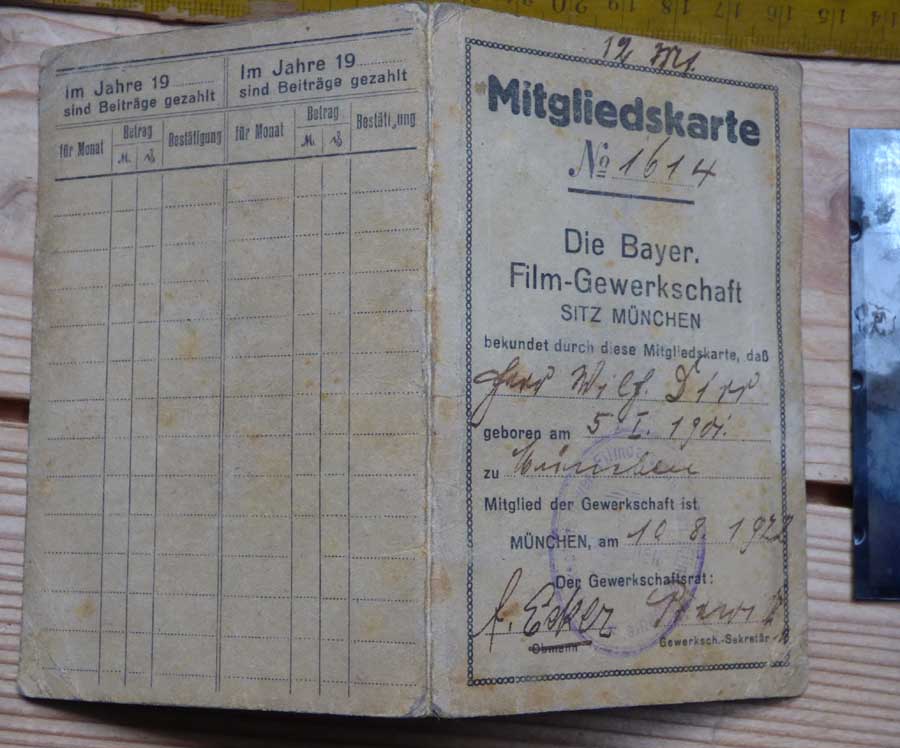 Im Jahre 19
sind Beiträge gezahlt
für Monat
Betrag
M.
₰
Bestätigung
Im Jahre 19
sind Beiträge gezahlt
für Monat
Betrag
M.
₰
Bestätigung
12 M
Mitgliedskarte
№ 1614
Die Bayer.
Film-Gewerkschaft
SITZ MÜNCHEN
bekundet durch diese Mitgliedskarte, daß
Herr Wilh.
geboren am 5 I. 1901.
zu München
Mitglied der Gewerkschaft ist
MÜNCHEN, am 10 8. 1922
Der Gewerkschaftsrat:
Obmann
Gewerksch.-Sekretär
20 18 17 16 15 14